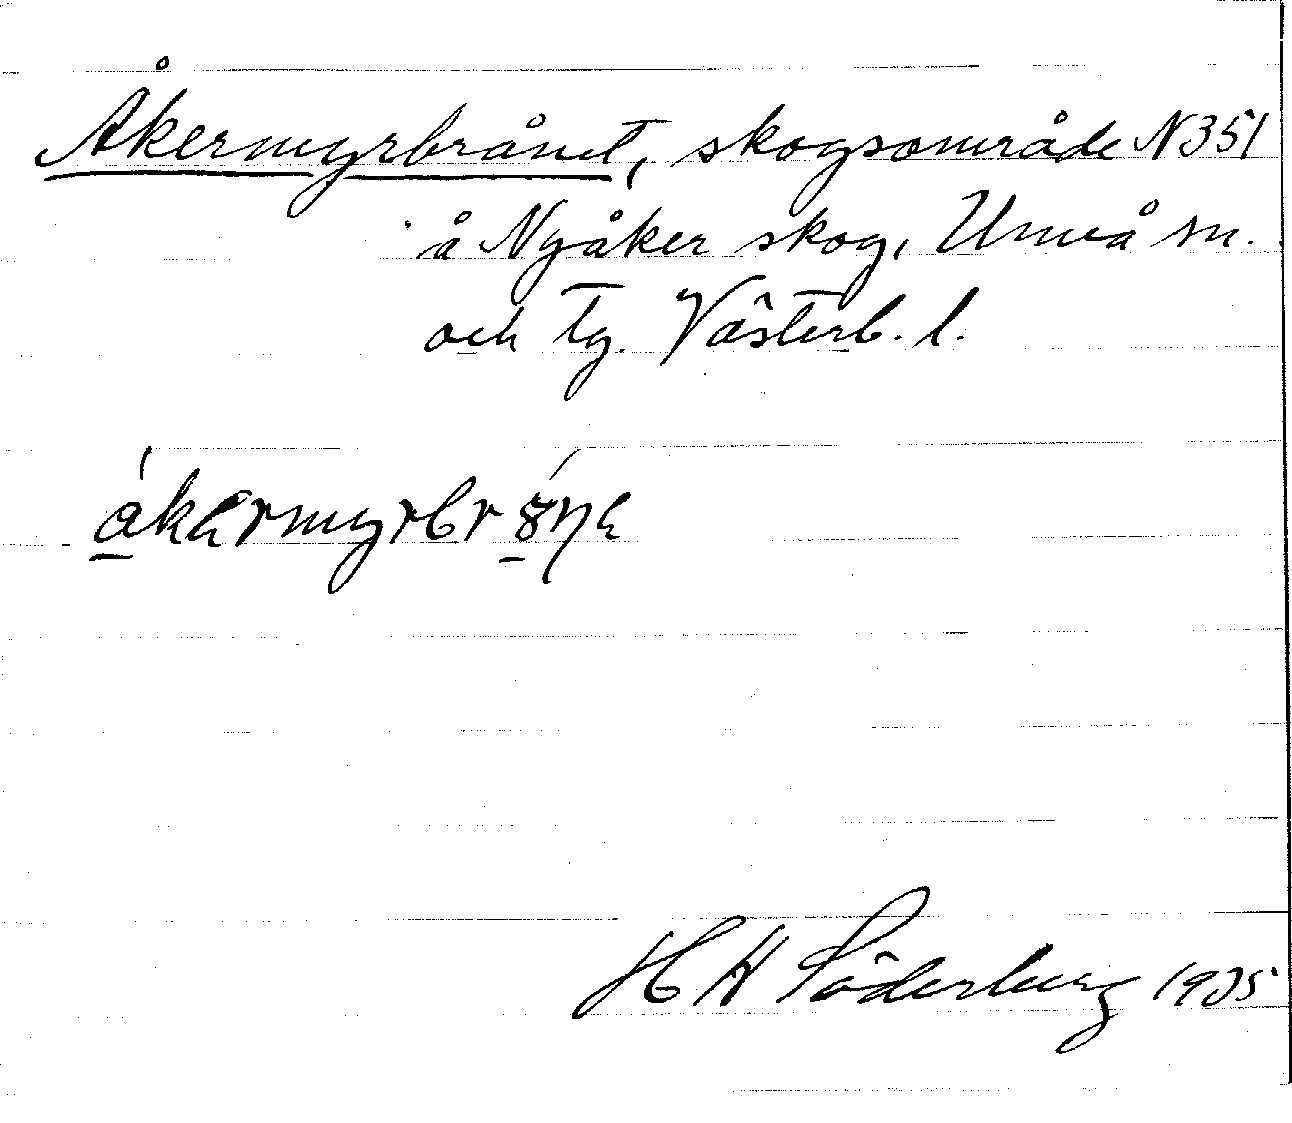 Åkermyrbrånet, skogsområde N351
å Nyåker skog, Umeå sn.
och tg. Västerb. l.
H H Söderberg 1935